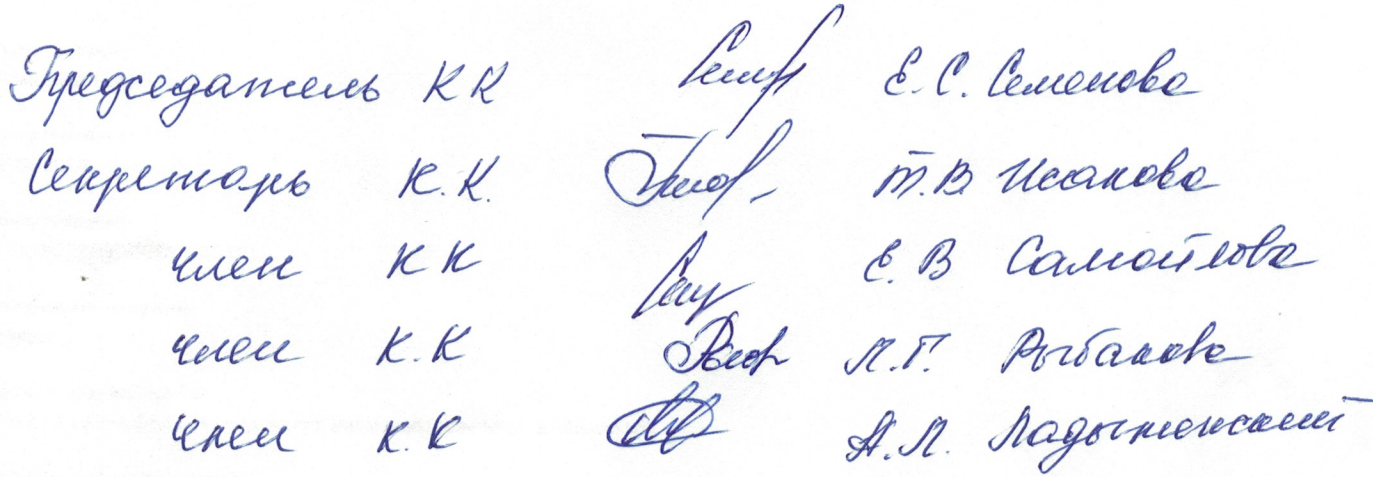 Председатель КК Е.С. Семенова
Секретарь К.К. Т.В Исакова
член КК Е.В Самойлова
член К.К Л.Г. Рыбакова
член К.К А.Л.